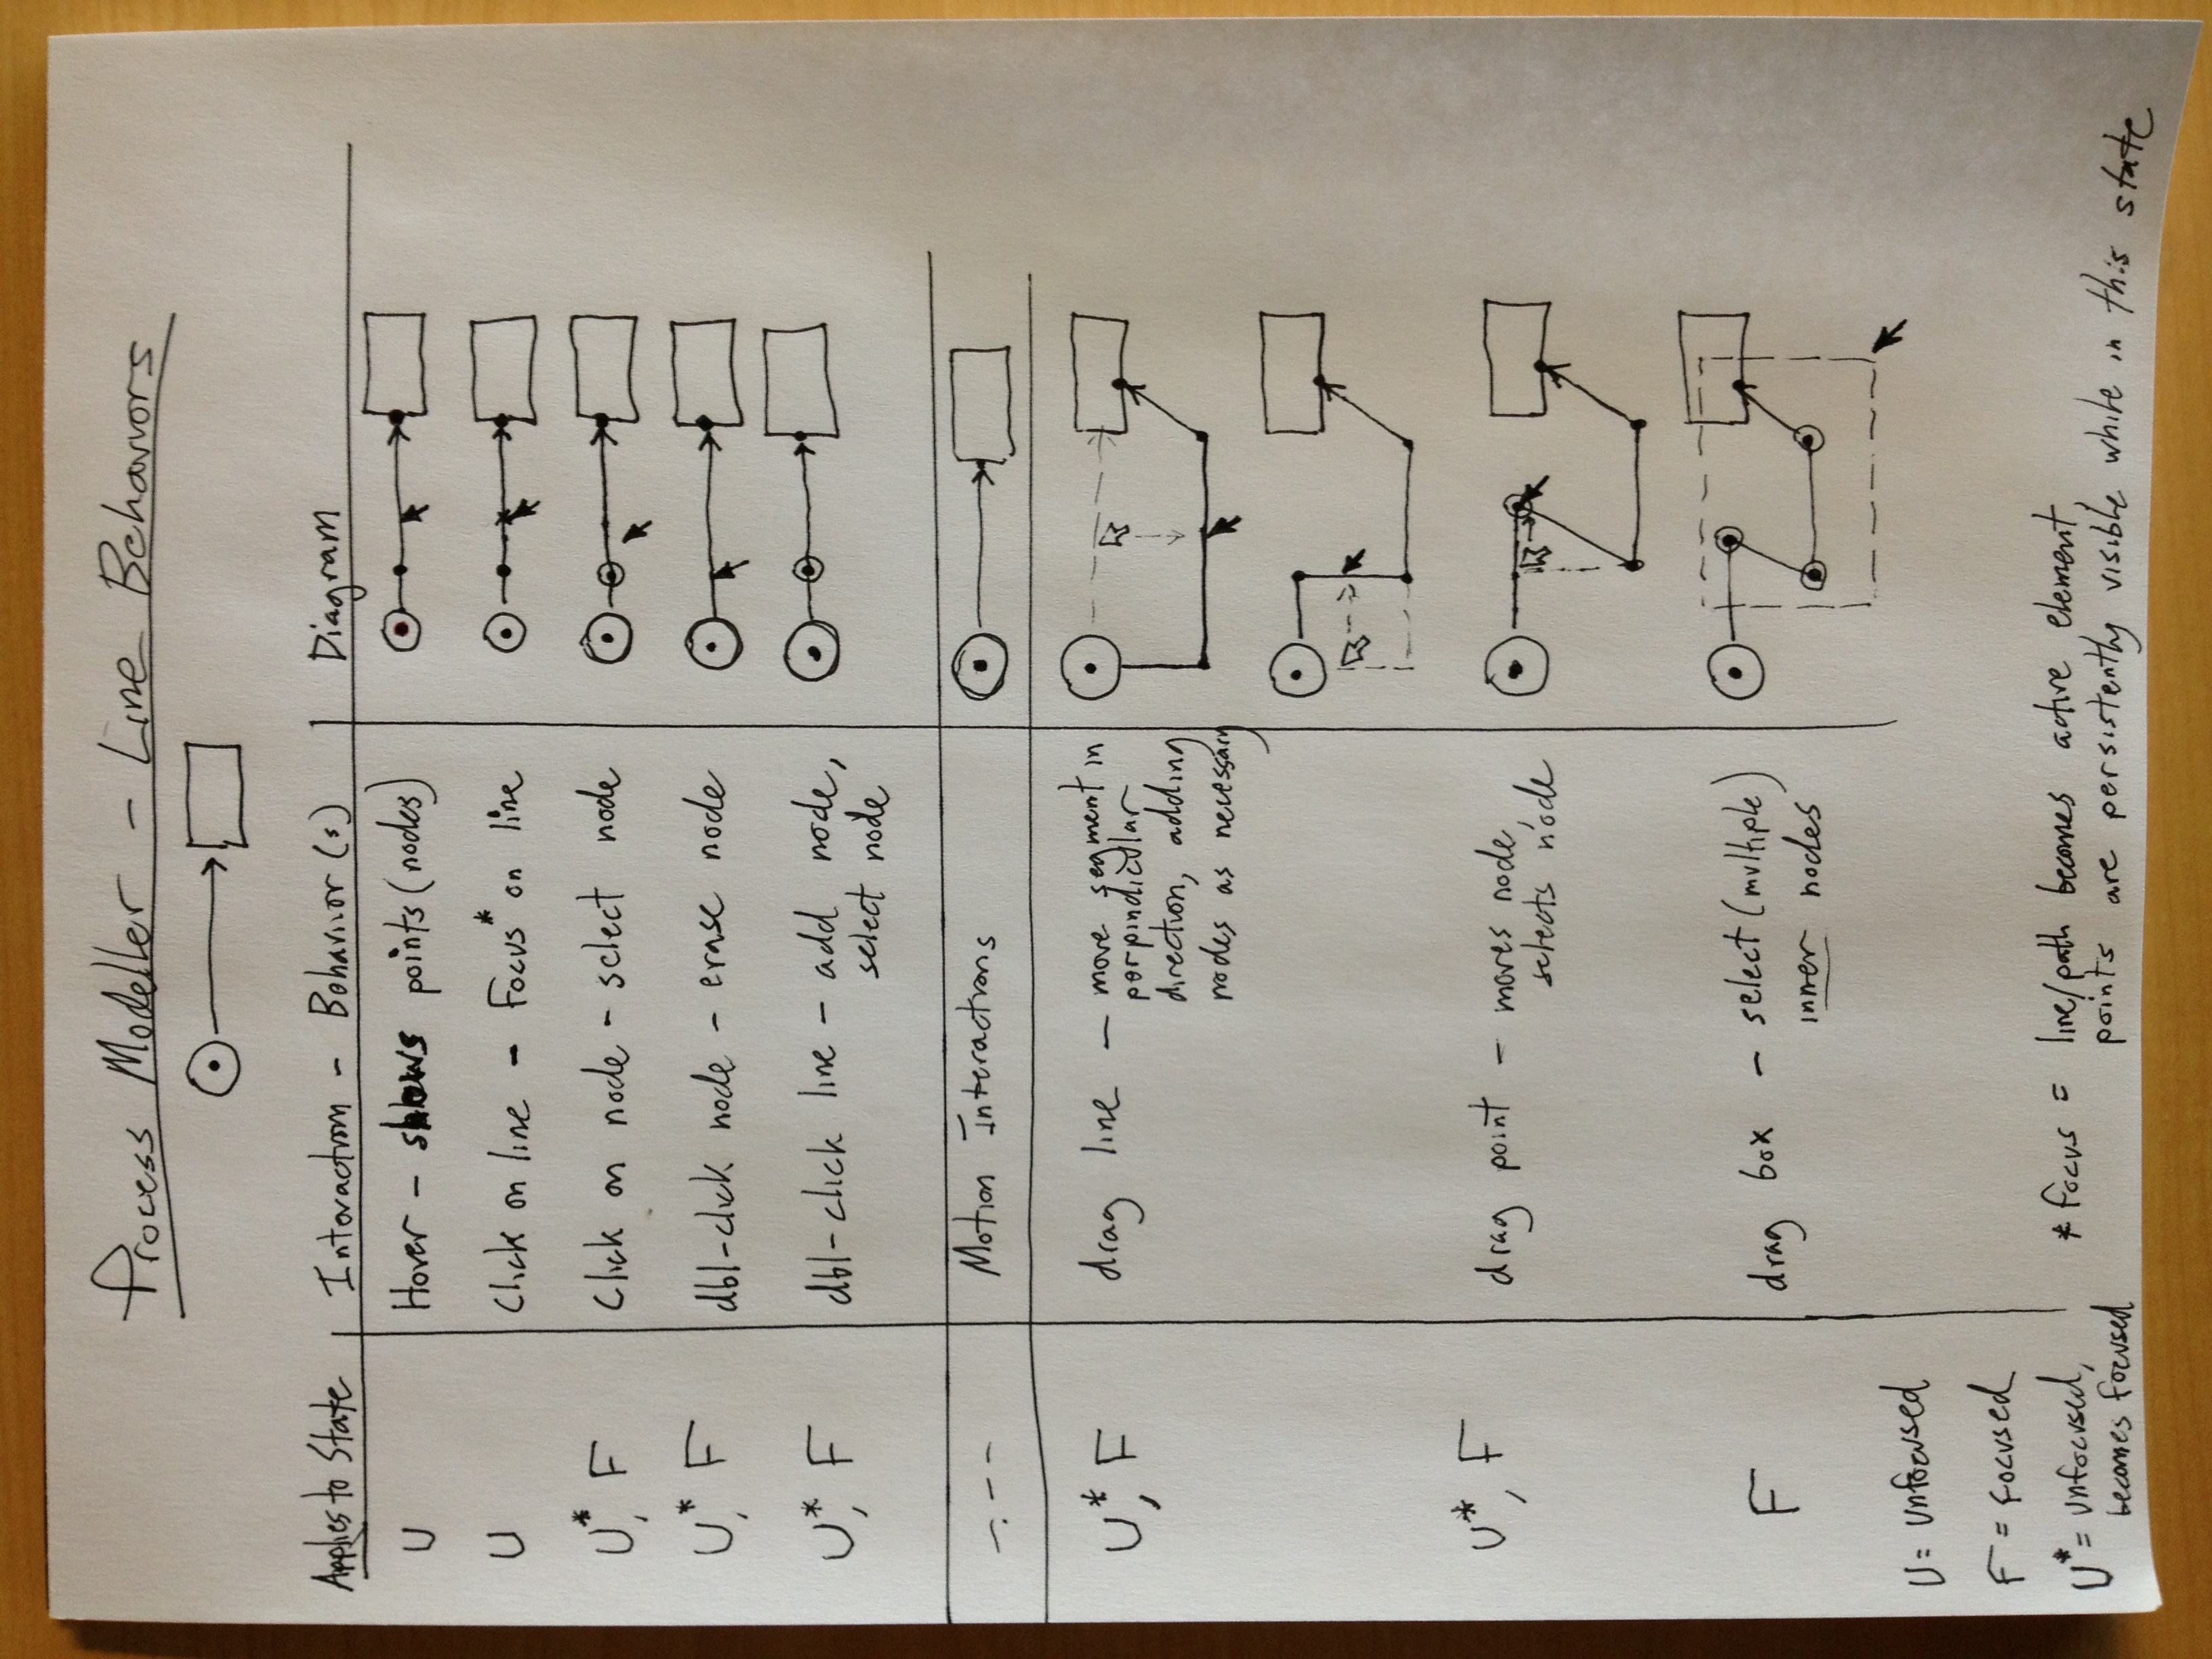 Process Modeller - Line Behaviors
Applies to State Interaction - Behavior(s) Diagram
U Hover - shows points (nodes)
U Click on line - Focus* on line
U*, F Click on node - select node
U*, F dbl-click node - erase node
U*, F dbl-click line - add node,
select node
Motion Interactions
U*, F drag line - move segment in
perpindicular
direction, adding
nodes as necessary
U*, F drag point - moves node,
selects node
F drag box - select (multiple)
inner nodes
U = unfocused
F = focused
U* = unfocused,
becomes focused
* focus = line/path becomes active element,
points are persistently visible while in this state